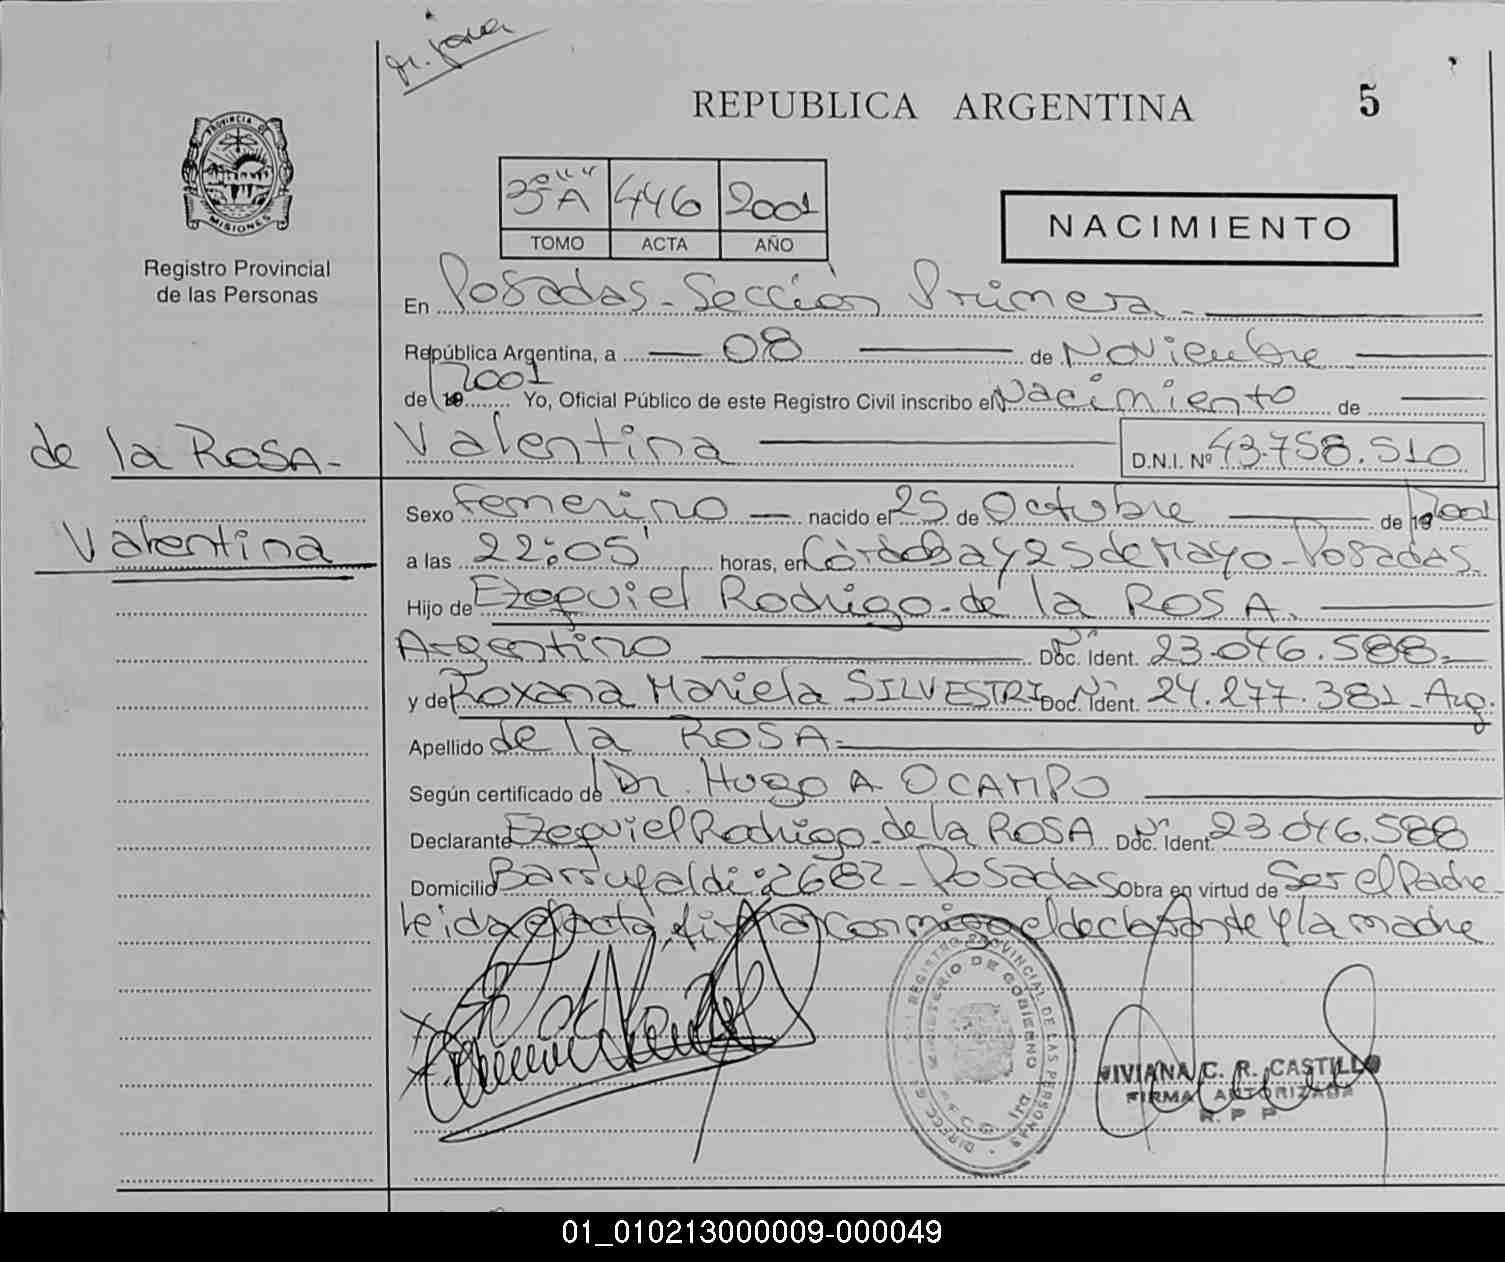 REPUBLICA ARGENTINA
5
PROVINCIA DE
MISIONES
Registro Provincial
de las Personas
3º "A" 446 2001
TOMO ACTA AÑO
NACIMIENTO
En Posadas - Sección Primera -
República Argentina, a 08 de Noviembre
de 19 2001 Yo, Oficial Público de este Registro Civil inscribo el Nacimiento de
de la ROSA -
Valentina
Valentina
D.N.I. Nº 43.758.510
Sexo Femenino nacido el 25 de Octubre de 19 2001
a las 22:05' horas, en Córdoba y 25 de Mayo - Posadas.
Hijo de Ezequiel Rodrigo de la ROSA.
Argentino Doc. Ident. Nº 23.046.588 -
y de Roxana Mariela SILVESTRI Doc. Ident. Nº 24.277.381 - Arg.
Apellido de la ROSA -
Según certificado de Dr. Hugo A OCAMPO
Declarante Ezequiel Rodrigo de la ROSA Doc. Ident. Nº 23.046.588
Domicilio Barrufaldi: 2682 - Posadas Obra en virtud de Ser el Padre -
leida el acta, firman conmigo el declarante y la madre
REGISTRO PROVINCIAL DE LAS PERSONAS
MINISTERIO DE GOBIERNO
VIVIANA C. R. CASTILLO
FIRMA AUTORIZADA
R. P. P.
01_010213000009-000049